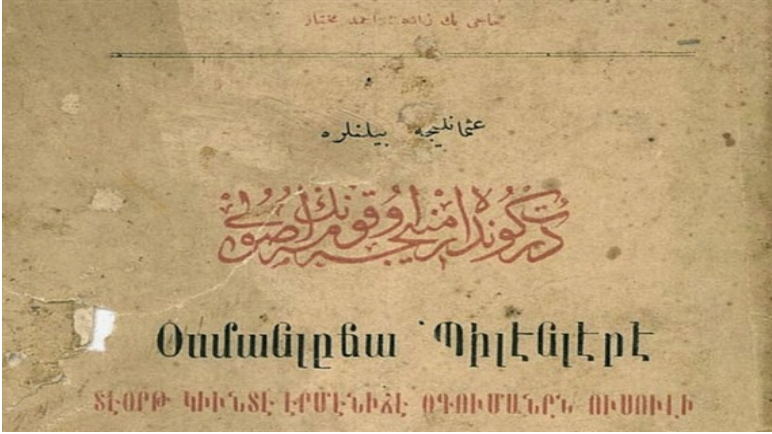 احمد مختار
عثمانلیجه بیلنلره
درت گونده ارمنیجه اوقومه‌نك اصولی
Օսմանլըճա Պիլէնլէրէ
ՏԷՕՐԹ ԿԻՒՆՏԷ ԷՐՄԷՆԻՃԷ ՕԳՈՒՄԱՆԸՆ ՈՒՍՈՒԼԻ